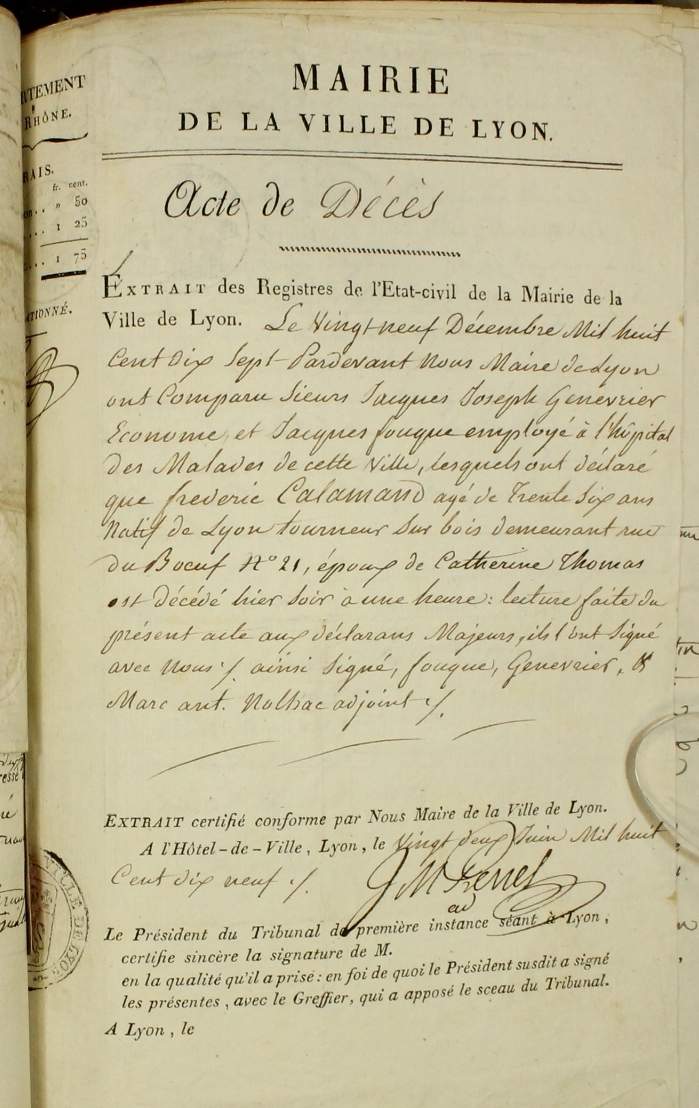 MAIRIE
DE LA VILLE DE LYON.
RTEMENT
RHÔNE.
RAIS.
fr. cent.
on.. „ 50
... 1 25
... 1 75
CTIONNÉ.
Acte de Décès
EXTRAIT des Registres de l'Etat-civil de la Mairie de la
Ville de Lyon. Le Vingt neuf Décembre Mil huit
Cent dix Sept Pardevant Nous Maire de Lyon
ont Comparu Sieurs Jacques Joseph Genevrier
Econome, et Jacques fouque employé à l'hôpital
Des Malades de cette Ville, lesquels ont déclaré
que frederic Calamand agé de Trente Six ans
Natif de Lyon tourneur Sur bois demeurant rue
du Boeuf N° 21, époux de Catherine Thomas
est décédé hier Soir à une heure: lecture faite du
présent acte aux déclarans Majeurs, ils l'ont Signé
avec Nous ./. ainsi Signé, fouque, Genevrier, &
Marc ant. Nolhac adjoint ./.
EXTRAIT certifié conforme par Nous Maire de la Ville de Lyon.
A l'Hôtel-de-Ville, Lyon, le Vingt deux Juin Mil huit
Cent dix neuf ./.
ad
Le Président du Tribunal de première instance séant à Lyon,
certifie sincère la signature de M.
en la qualité qu'il a prise : en foi de quoi le Président susdit a signé
les présentes, avec le Greffier, qui a apposé le sceau du Tribunal.
A Lyon, le
VILLE DE LYON